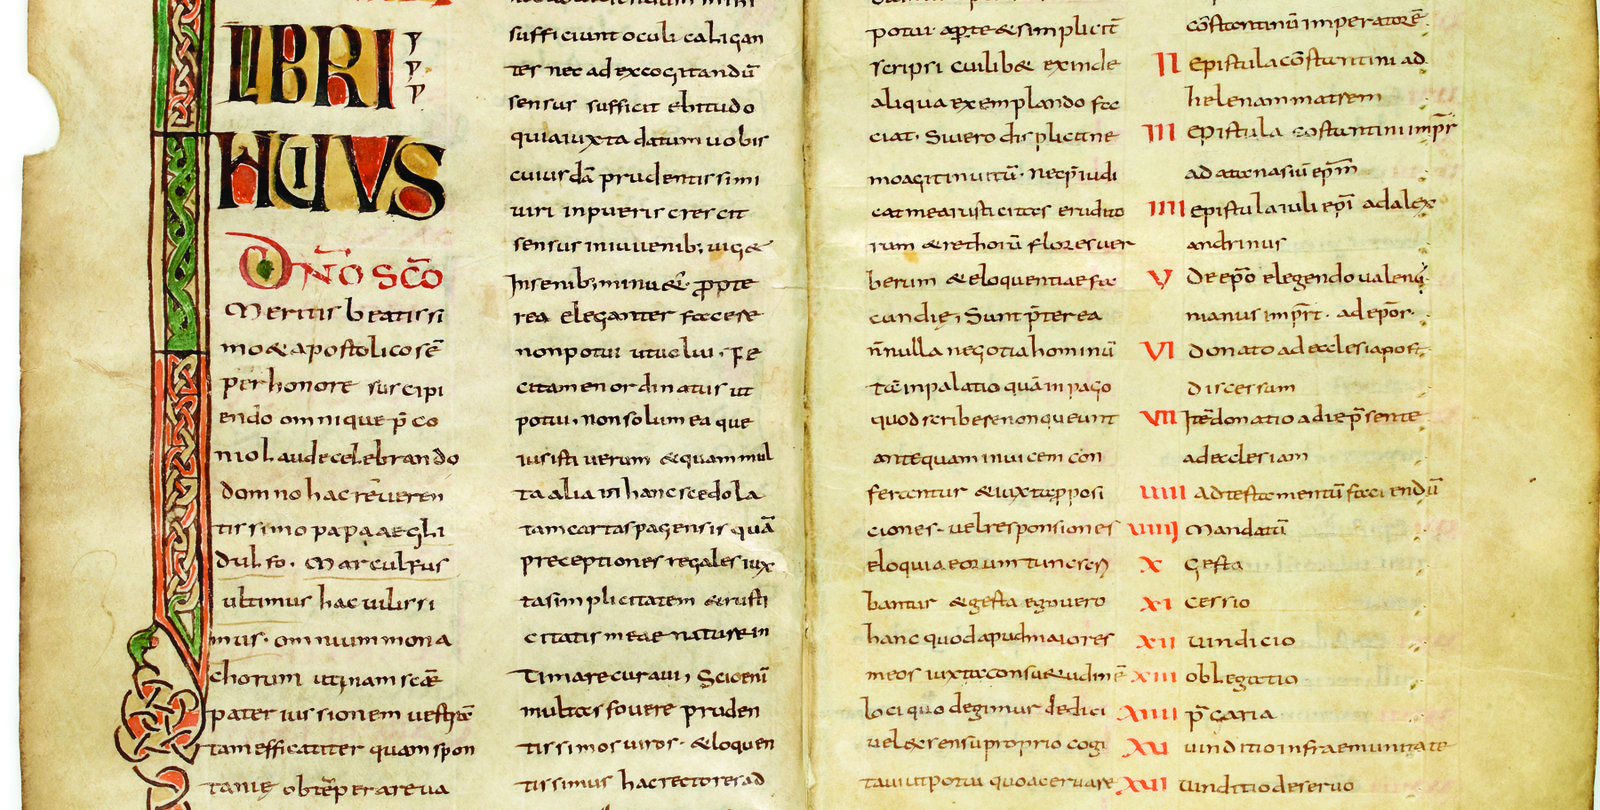 LIBRI
HUIUS
DNO SCO
Meritis beatissi
mo & apostolico sē
per honore suscipi
endo omnique p̄co
nio laude celebrando
domno hac rēveren
tissimo papa aegli
dulfo. Marculfus
ultimus hac vilissi
mus. omnium mona
chorum utinam scāe
pater iussionem vestrā
tam efficaciter quam spon
tanię obtēperare va
sufficiunt oculi caligan
tes nec ad excogitandū
sensus sufficit ebitudo
quia iuxta datum vobis
cuiusdā prudentissimi
viri in pueris crescit
sensus in iuvenib; vig&
Insenib; minu&ur. propte
rea eleganter facere
non potui ut volui. Fe
ci tamen ordinatus ut
potui. non solum ea que
iusisti verum & quam mul
ta alia in hanc scedola
tam cartas pagensis quā
preceptiones regales iux
ta simplicitatem & rusti
citatis meae nature in
Timare curavi, Scio enī
multos fovere pruden
tissimos viros. & eloquen
tissimus hac rectores ad
potui aperte & simplicit̄
scripsi cuilib& exinde
aliqua exemplando fac
ciat. Si vero displicine
moagit invitū. nec p̄iudi
cat mea rusticitas erudito
rum & rethorū flores ver
berum & eloquentiae fa
cundię, Sunt p̄terea
n̄nulla negotia hominū
tā in palatio quā in pago
quod scribere non queunt
antequam invicem con
ferantur & iuxta pposi
ciones. vel responsiones
eloquia eorum tunc scri
bantur & gesta ego vero
hanc quod apud maiores
meos iuxta consu&udinē
loci quo degimus dedici
vel ex sensu proprio cogi
tavi ut potui quo acervare
cōstantinū imperatorē
II Epistula cōstantini ad
helenam matrem
III Epistula costantini imp̄r
ad atanasiū ep̄m
IIII epistula iuli ep̄i ad alex
andrinus
V De ep̄o elegendo valenti
nianus imp̄rt. ad ep̄or.
VI Donatio ad ecclesia post
discessum
VII Itē donatio a die p̄sente
ad ecclesiam
VIIII Mandatū
X Gesta
XI Cessio
XII Vindicio
XIII oblegatio
XIIII p̄caria
XV vinditio infra emunitate
XVI vinditio de servo